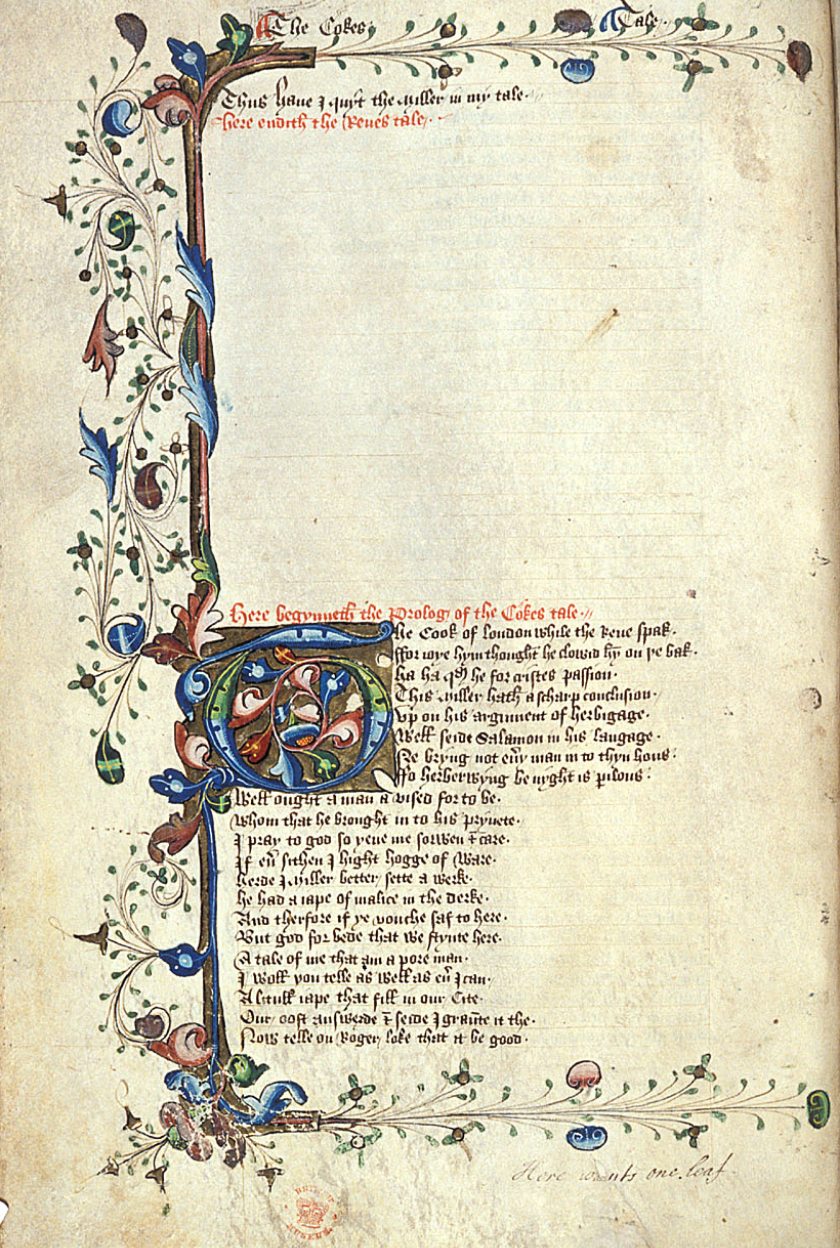 The Cokes Tale
Thus haue I quyt the Miller in my tale
Here endith the Reues tale
Here begynneth the Prolog of the Cokes tale
The Cook of london while the Reue spak
ffor ioye hym thought he clowid hȳ on þe bak
ha ha qd he for cristes passion
This Miller hath a scharp conclusion
Vp on his argument of herbigage
Well seide Salamon in his langage
Ne bryng not eūy man in to thyn hous
ffo herberwyng be nyght is pilous
Well ought a man a vised for to be
Whom that he brought in to his pryuete
I pray to god so yeue me sorwen & care
If eū sithen I hight hogge of Ware
Herde I Miller better sette a werk
he had a iape of malice in the derke
And therfore if ye vouche saf to here
But god for bede that we stynte here
A tale of me that am a pore man
I woll you telle as well as eū I can
A litull iape that fill in our Cite
Our oost answerde & seide I graūte it the
Now telle on Roger loke that it be good
Here wants one leaf